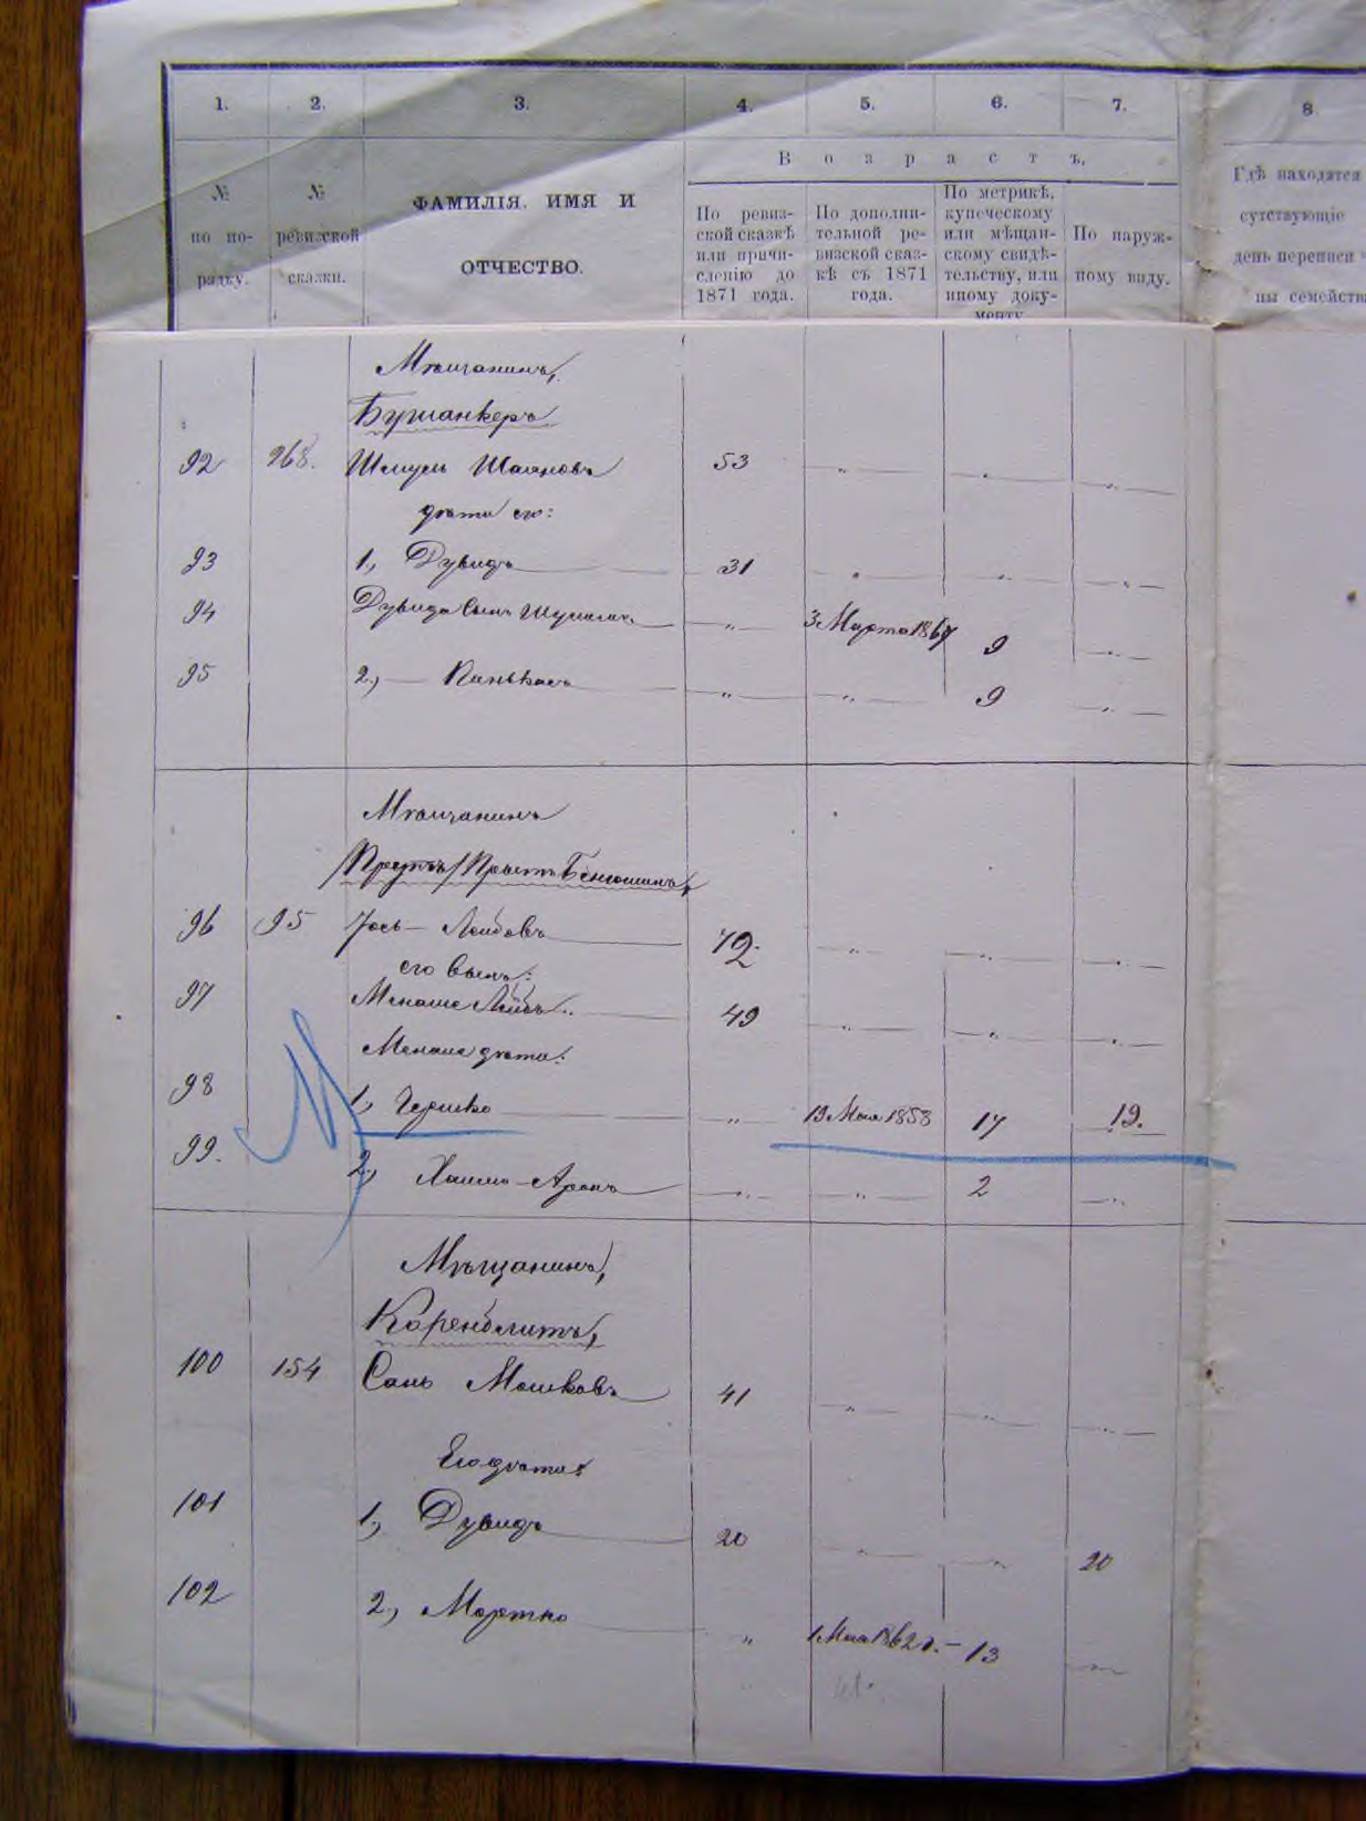 1. 2. 3. 4. 5. 6. 7. 8
Возрастъ.
№ по порядку.
№ ревизской сказки.
ФАМИЛІЯ, ИМЯ И
ОТЧЕСТВО.
По ревиз-
ской сказкѣ
или причи-
сленію до
1871 года.
По дополни-
тельной ре-
визской сказ-
кѣ съ 1871
года.
По метрикѣ,
купеческому
или мѣщан-
скому свидѣ-
тельству, или
иному доку-
менту
По наруж-
ному виду.
Гдѣ находятся
сутствующіе
день переписи ч
ны семейств
Мѣщанинъ,
92 268. Шмуль 53
дѣти его:
93 1, Дувидъ 31
94 Дувида сынъ 3 Марта 1867 9
95 2, Пинькасъ 9
Мѣщанинъ
96 95 Іось Лейбовъ 72
его сынъ:
97 Менаше Лейбъ 49
Менаше дѣти:
98 1, Гершко 19 Мая 1858 17 19.
99. 2, Хаимъ-Аронъ 2
Мѣщанинъ,
Коренблитъ,
100 154 Мошковъ 41
Его дѣти:
101 1, Дувидъ 20 20
102 2, Мортко 1 Мая 1862 г. 13